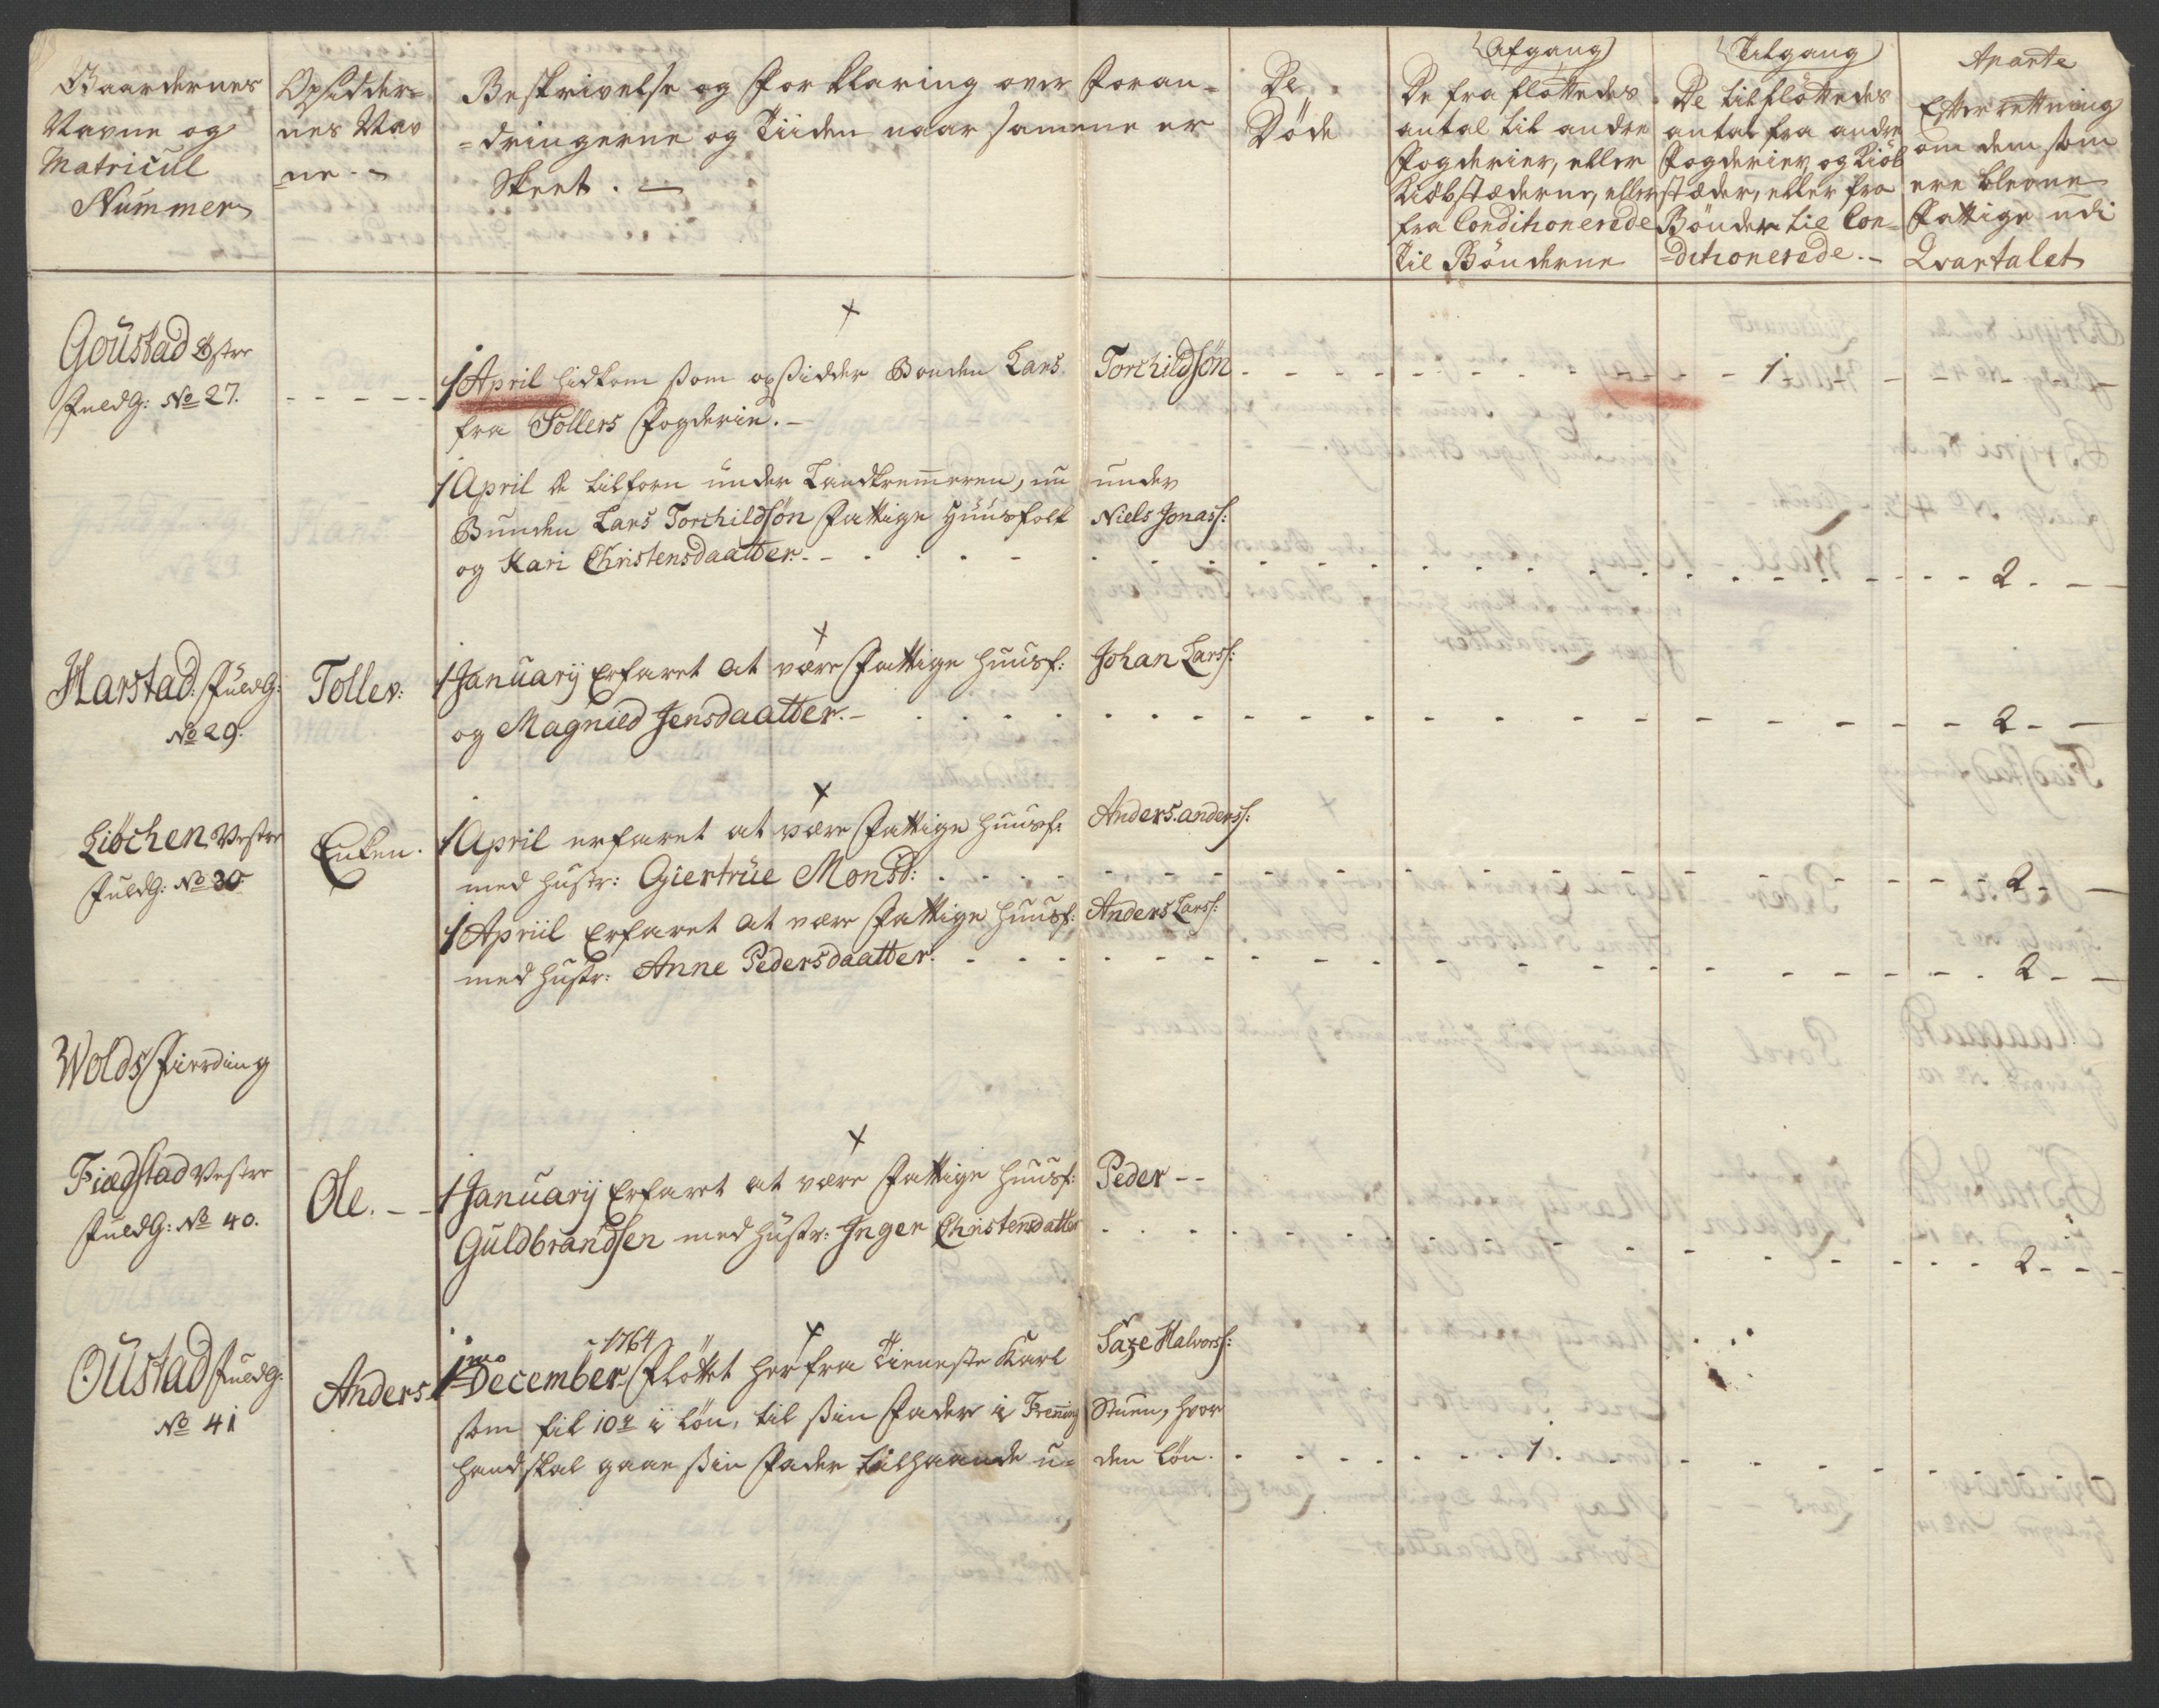 Gaardernes
Navne og
Matricul
Nummer
Opsidder=
nes Nav
ne. -
Beskrivelse og Forklaring over Foran-
=dringerne og Tiiden naar samme er
Skeet. -
De
Døde
Afgang
De fra fløttedes
antal til andre
Fogderier, eller
Kiøbstæderne, eller
fra Conditionerede
til Bønderne
Tilgang
De tilfløttedes
antal fra andre
Fogderier, og Kiøb
stæder, eller fra
Bønder til Con-
=ditionerede. -
Aparte
Efterrettning
om dem som
ere blevne
Fattige udi
Qvartalet
Goustad østre
FuldG: No 27.
1 April hidkom som opsidder Bonden Lars Torchildsøn - - - 1 - -
fra Follers Fogderie. -
1 April de tilforn under Landkremmeren, nu under
Bunden Lars Torchildsøn Fattige Huusfolk Niels Jonass:
og Kari Christensdaatter. - - - 2. -
Harstad: FuldG:
No 29.
Toller:
1 Januarij Erfaret at være Fattige Huusf: Johan Larss:
og Magnild Jensdaatter. - - - 2 - -
Liøchen Vestre
FuldG: No 30.
Enken.
1 April erfaret at være Fattige Huusf: Anders anderss:
med Hustr: Giertrüe Monsd: - - - 2. -
1 Apriil Erfaret at være Fattige Huusf: Anders Larss:
med Hustr: Anne Pedersdaatter. - - - 2 - -
Wolds Fierding
Fiædstad Vestre
FuldG: No 40.
Ole. - -
1 Januarij Erfaret at være Fattige Huusf: Peder - -
Guldbrandsen med Hustr: Inger Christensdatter - - - 2 - - -
Oustad FuldG:
No 41
Anders.
1mo December 1764 Fløttet herfra Tieneste Karl Saxe Halvorss:
som fik 10 i Løn, til sin Fader i Stuen, hvor
hand skal gaae sin Fader tilhaande u= den Løn. - - - 1. - -